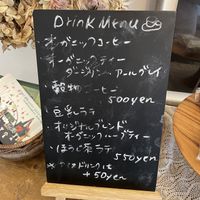 Drink Menu
・オーガニックコーヒー
・オーガニックティー
ダージリン アールグレイ
・穀物コーヒー
500yen
・豆乳ラテ
・オリジナルブレンド
オーガニックハーブティー
・ほうじ茶ラテ
550yen
※アイスドリンクは
+50yen